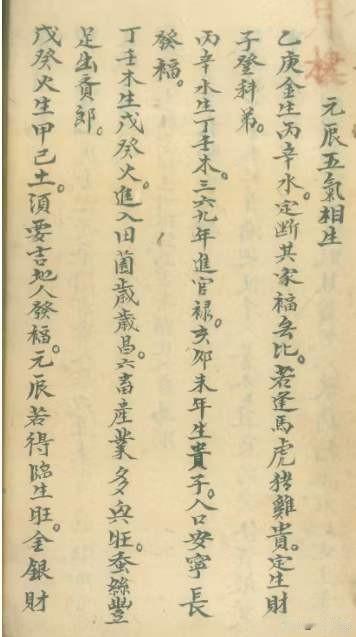 元辰五氣相生
乙庚金生丙辛水。定断其家福无比。若逢馬虎猪雞貴。定生財
子登科弟。
丙辛水生丁壬木。三六九年進官禄。亥卯未年生貴子。人口安寧長
發福。
丁壬木生戊癸火。進入田園歲歲昌。六畜產業多興旺。蚕絲豐
足出貢郎。
戊癸火生甲己土。須要吉地人發福。元辰若得臨生旺。金銀財